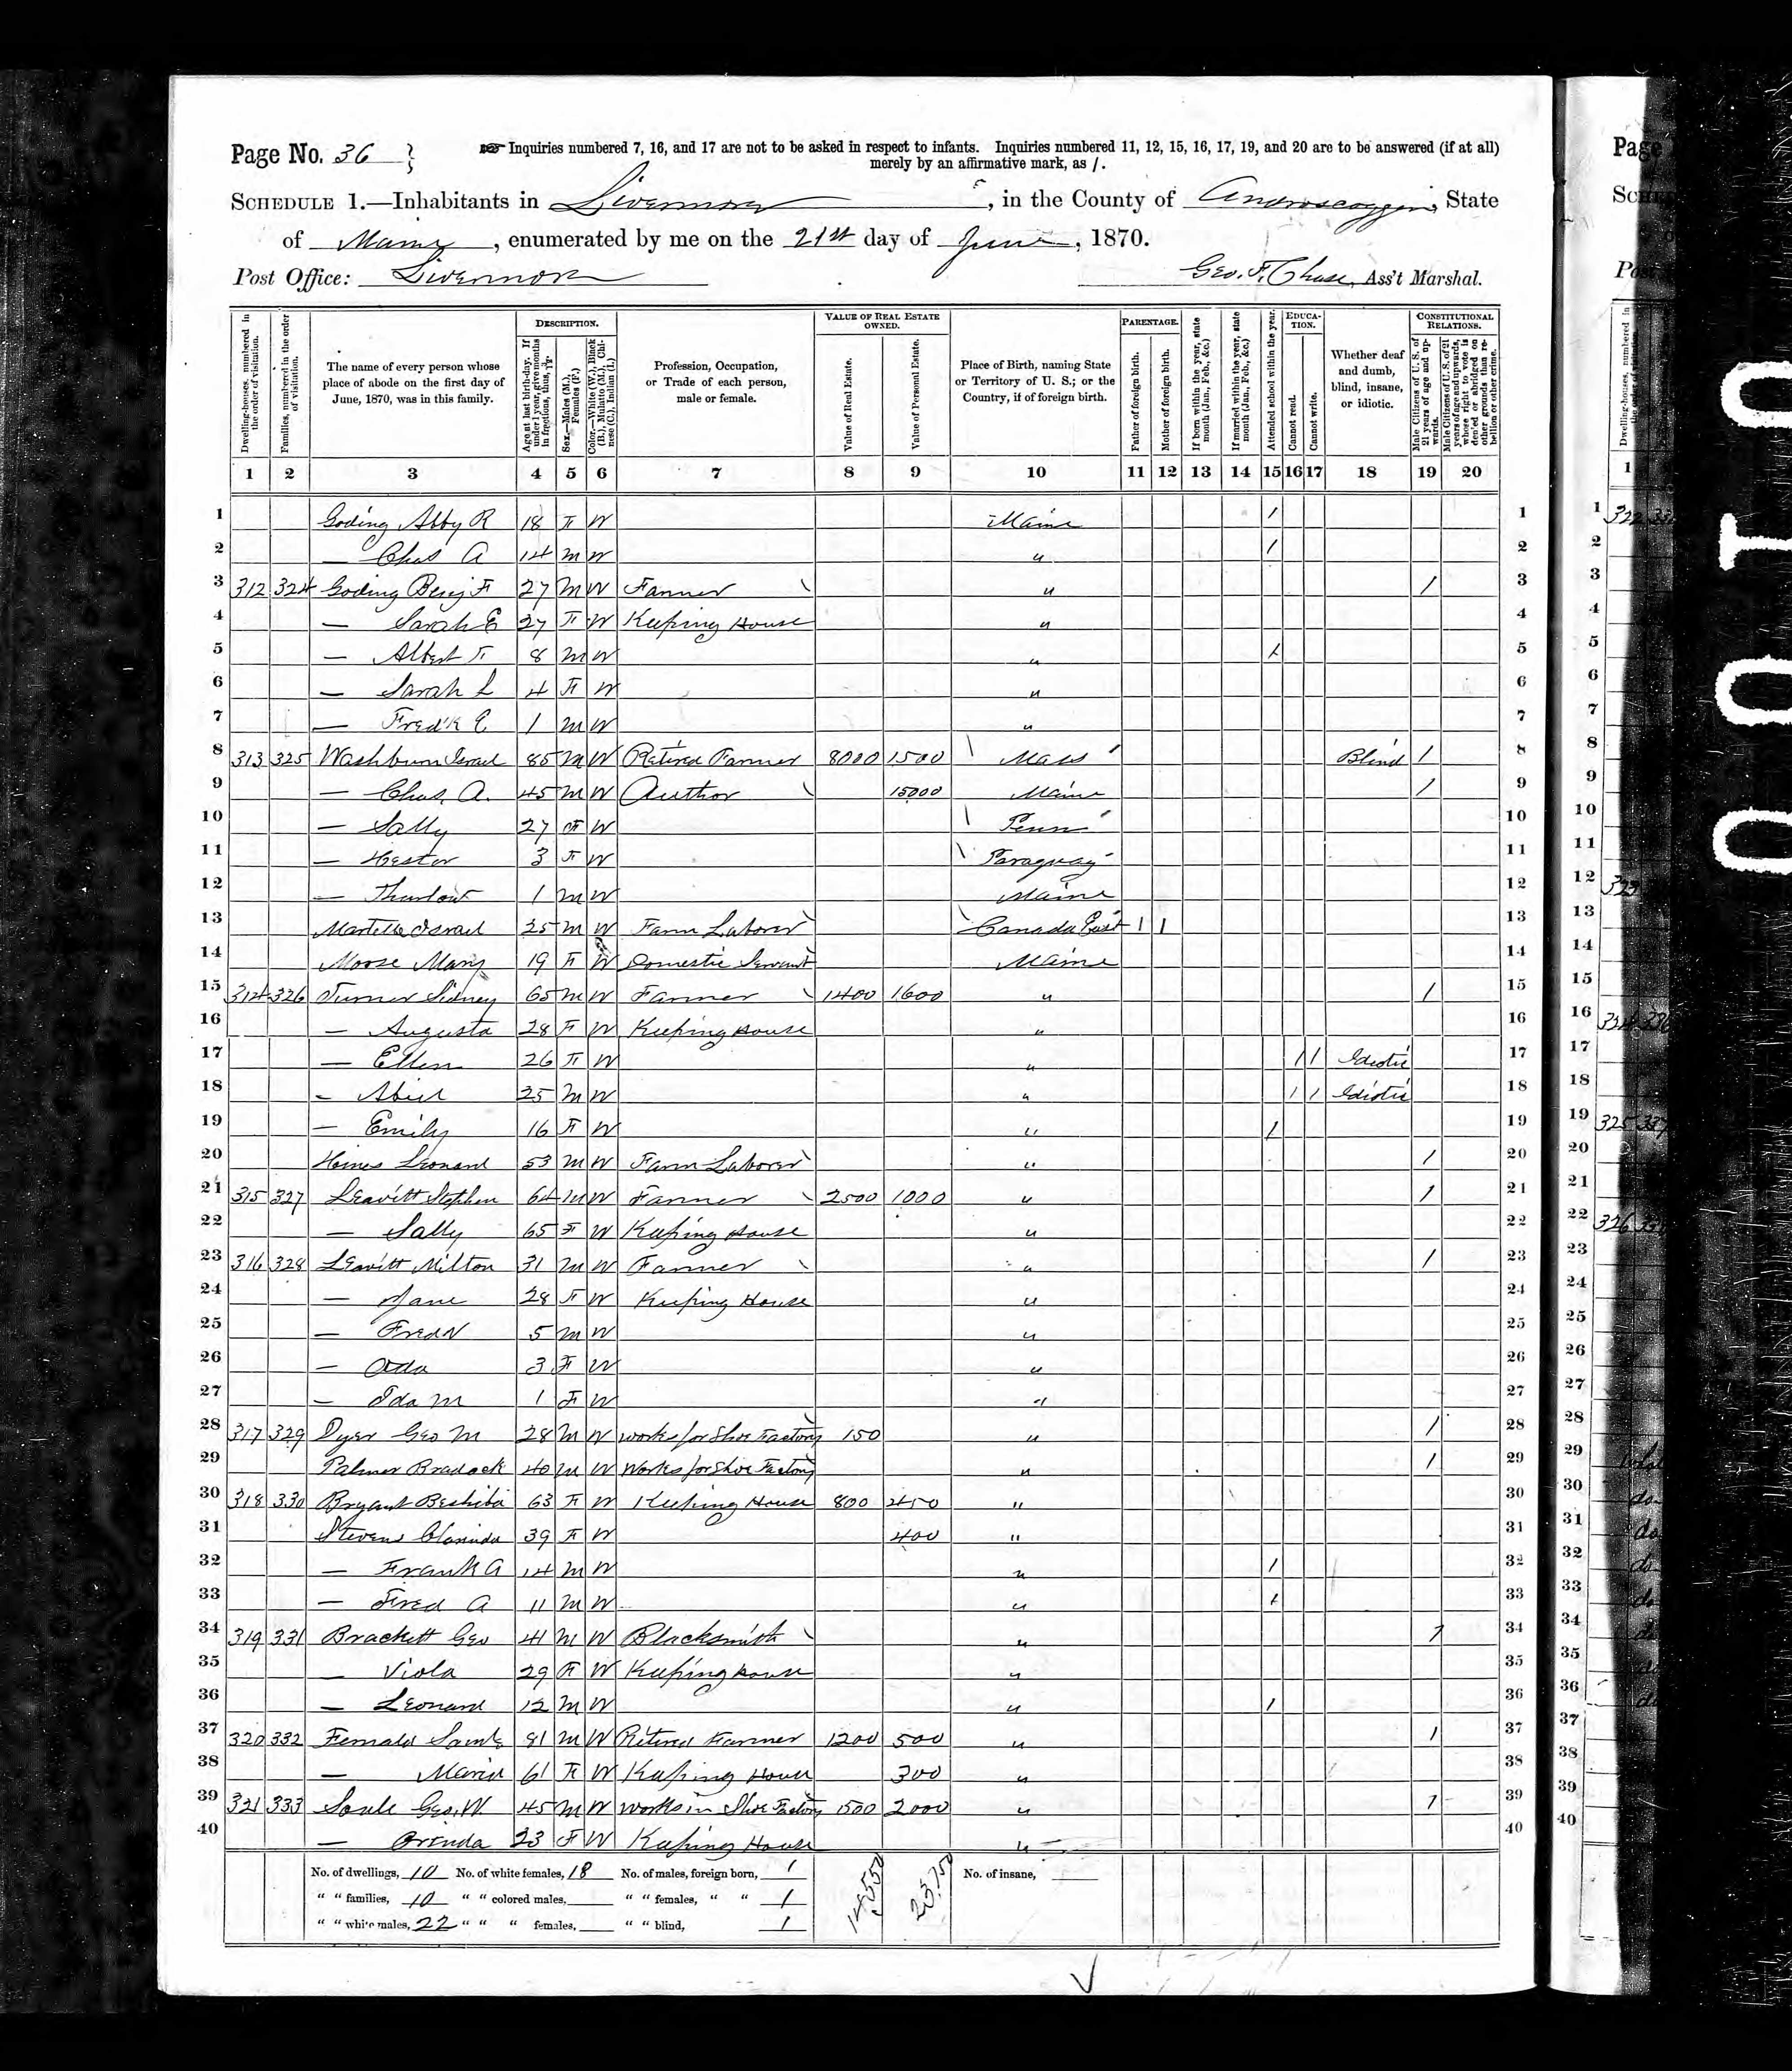 Page No. 36
Inquiries numbered 7, 16, and 17 are not to be asked in respect to infants. Inquiries numbered 11, 12, 15, 16, 17, 19, and 20 are to be answered (if at all)
merely by an affirmative mark, as /.
SCHEDULE 1.—Inhabitants in Livermore, in the County of Androscoggin, State
of Maine, enumerated by me on the 21st day of June, 1870.
Post Office: Livermore
Geo. F. Chase, Ass't Marshal.
Dwelling-houses, numbered in the order of visitation.
Families, numbered in the order of visitation.
The name of every person whose place of abode on the first day of June, 1870, was in this family.
DESCRIPTION.
Age at last birth-day. If under 1 year, give months in fractions, thus,
Sex.—Males (M.), Females (F.)
Color.—White (W.), Black (B.), Mulatto (M.), Chinese (C.), Indian (I.)
Profession, Occupation, or Trade of each person, male or female.
VALUE OF REAL ESTATE OWNED.
Value of Real Estate.
Value of Personal Estate.
Place of Birth, naming State or Territory of U. S.; or the Country, if of foreign birth.
PARENTAGE.
Father of foreign birth.
Mother of foreign birth.
If born within the year, state month (Jan., Feb., &c.)
If married within the year, state month (Jan., Feb., &c.)
Attended school within the year.
EDUCATION.
Cannot read.
Cannot write.
Whether deaf and dumb, blind, insane, or idiotic.
CONSTITUTIONAL RELATIONS.
Male Citizens of U. S. of 21 years of age and upwards.
Male Citizens of U. S. of 21 years of age and upwards, whose right to vote is denied or abridged on other grounds than rebellion or other crime.
1 2 3 4 5 6 7 8 9 10 11 12 13 14 15 16 17 18 19 20
1 Goding Abby R 18 F W Maine / 1
2 — Chas A 14 M W " / 2
3 312 324 Goding Benj F 27 M W Farmer " / 3
4 — Sarah E 27 F W Keeping House " 4
5 — Albert F 8 M W " / 5
6 — Sarah L 4 F W " 6
7 — Fred'k E 1 M W " 7
8 313 325 Washburn Israel 85 M W Retired Farmer 8000 1500 Mass Blind / 8
9 — Chas. A. 45 M W Author 15000 Maine / 9
10 — Sally 27 F W Penn 10
11 — Hester 3 F W Paraguay 11
12 — Thurlow 1 M W Maine 12
13 Martelle Israel 25 M W Farm Laborer Canada East / / 13
14 Moose Mary 19 F W Domestic Servant Maine 14
15 314 326 Turner Sidney 65 M W Farmer 1400 1600 " / 15
16 — Augusta 28 F W Keeping House " 16
17 — Ellen 26 F W " / / Idiotic 17
18 — Abiel 25 M W " / / Idiotic 18
19 — Emily 16 F W " / 19
20 Leonard 53 M W Farm Laborer " / 20
21 315 327 Leavitt Stephen 64 M W Farmer 2500 1000 " / 21
22 — Sally 65 F W Keeping House " 22
23 316 328 Leavitt Milton 31 M W Farmer " / 23
24 — Jane 28 F W Keeping House " 24
25 — Fred N 5 M W " 25
26 — Ada 3 F W " 26
27 — Ida M 1 F W " 27
28 317 329 Dyer Geo M 28 M W Works for Shoe Factory 150 " / 28
29 Palmer Bradock 40 M W Works for Shoe Factory " / 29
30 318 330 Bryant 63 F W Keeping House 800 450 " 30
31 Stevens Clarinda 39 F W 400 " 31
32 — Frank A 14 M W " / 32
33 — Fred A 11 M W " / 33
34 319 331 Brackett Geo 41 M W Blacksmith " / 34
35 — Viola 29 F W Keeping House " 35
36 — Leonard 12 M W " / 36
37 320 332 Fernald Saml 81 M W Retired Farmer 1200 500 " / 37
38 — Maria 61 F W Keeping House 300 " 38
39 321 333 Soule Geo. W 45 M W Works in Shoe Factory 1500 2000 " / 39
40 — Orinda 23 F W Keeping House " 40
No. of dwellings, 10 No. of white females, 18 No. of males, foreign born, 1 No. of insane,
" " families, 10 " " colored males, " " females, " " 1
" " white males, 22 " " " females, " " blind, 1